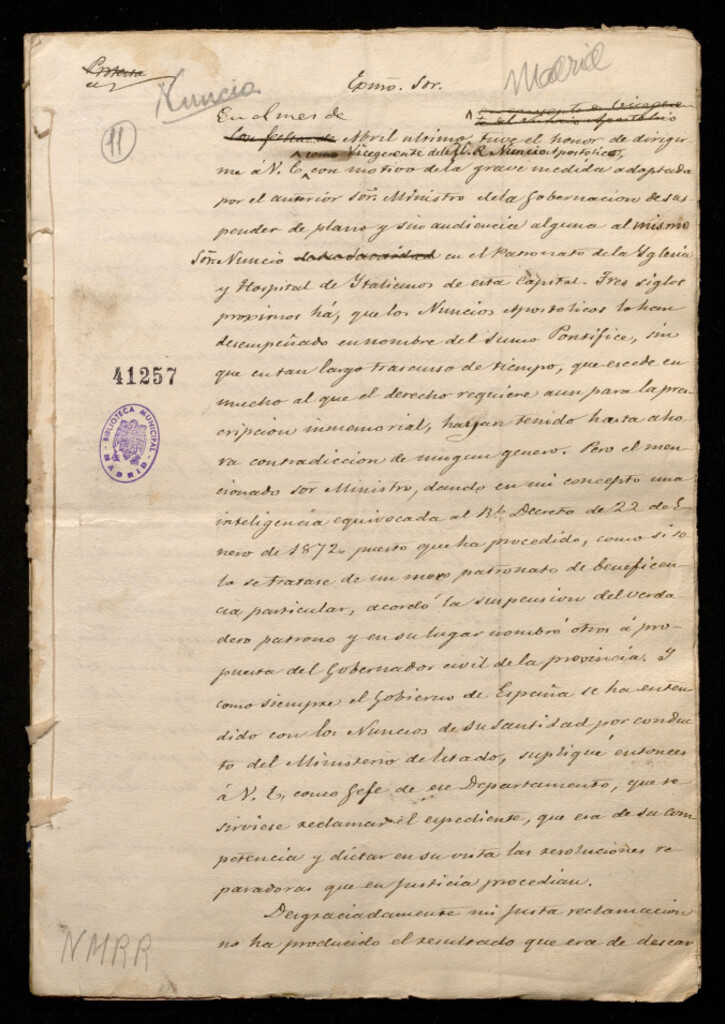 Protesta
Nuncio
Madrid
Exmo. Sor.
11
En el mes de
Abril ultimo, tuve el honor de dirigir-
como Vicegerente del M. R. Nuncio Apostolico,
me á V. E. con motivo de la grave medida adoptada
por el anterior Sor. Ministro de la Gobernacion de sus-
pender de plano y sin audiencia alguna al mismo
Sor. Nuncio en el Patronato de la Yglesia
y Hospital de Ytalianos de esta Capital. Tres siglos
proximos há, que los Nuncios Apostolicos lo han
desempeñado en nombre del Sumo Pontifice, sin
que en tan largo trascurso de tiempo, que escede en
mucho al que el derecho requiere aun para la pres-
cripcion inmemorial, hayan tenido hasta aho-
ra contradiccion de ningun genero. Pero el men-
cionado Sor Ministro, dando en mi concepto una
inteligencia equivocada al Rl. Decreto de 22 de E-
nero de 1872, puesto que ha procedido, como si so-
lo se tratase de un mero patronato de beneficen-
cia particular, acordó la suspension del verda
dero patrono y en su lugar nombró otros á pro-
puesta del Gobernador civil de la provincia. Y
como siempre el Gobierno de España se ha enten
dido con los Nuncios de Su Santidad por conduc-
to del Ministerio de Estado, supliqué entonces
á V. E, como Gefe de ese Departamento, que se
sirviese reclamar el espediente, que era de su com
petencia y dictar en su vista las resoluciones re
paradoras que en justicia procedian.
Desgraciadamente mi justa reclamacion
no ha producido el resultado que era de desear
41257
BIBLIOTECA MUNICIPAL
MADRID
NMRR